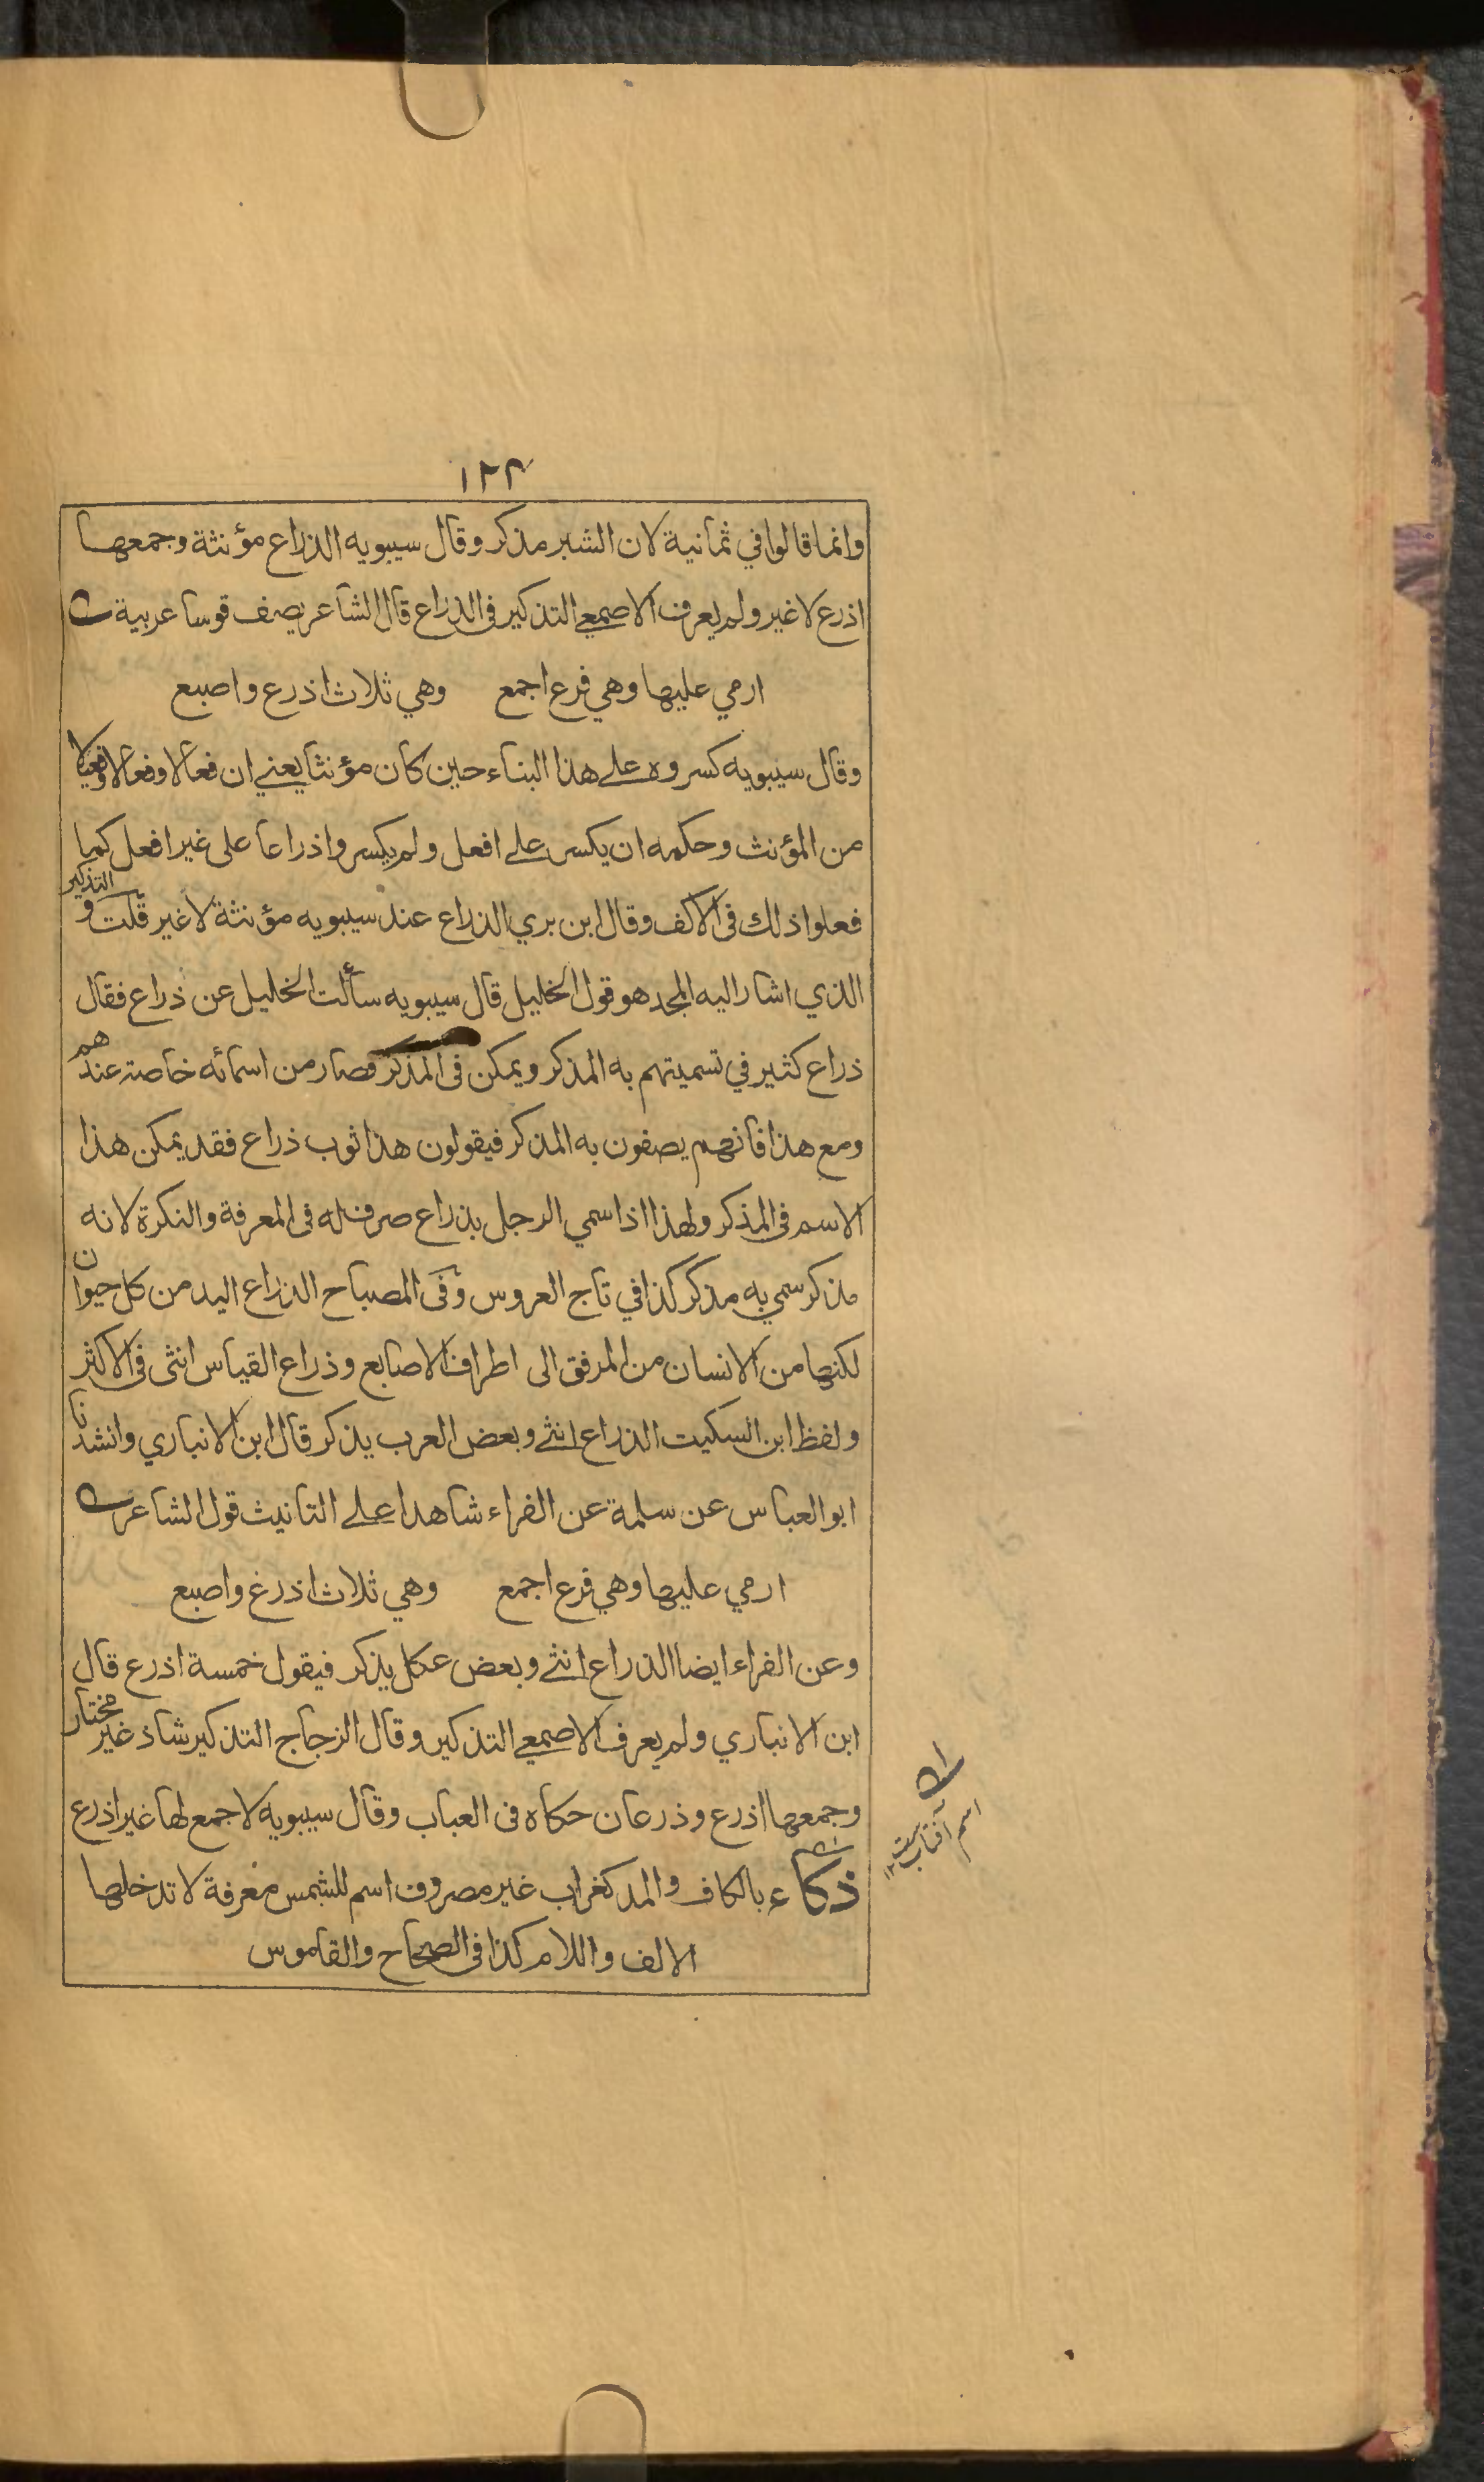 ١٢٢
وانما قالوا في ثمانية لان الشبر مذكر وقال سيبويه الذراع مؤنثة وجمعها
اذرع لا غير ولم يعرف الاصمعي التذكير فى الذراع قال الشاعر يصف قوسا عربية
ارمي عليها وهي فرع اجمع وهي ثلاث اذرع واصبع
وقال سيبويه كسروه على هذا البناء حين كان مؤنثا يعني ان فعالا وفعالا وفعيلا
من المؤنث وحكمه ان يكسر على افعل ولم يكسروا ذراعا على غير افعل كما
فعلوا ذلك فى الاكف وقال ابن بري الذراع عند سيبويه مؤنثة لا غير قلت و التذكير
الذي اشار اليه المجد هو قول الخليل قال سيبويه سألت الخليل عن ذراع فقال
ذراع كثير في تسميتهم به المذكر ويمكن فى المذكر فصار من اسمائه خاصة عندهم
ومع هذا فانهم يصفون به المذكر فيقولون هذا ثوب ذراع فقد يمكن هذا
الاسم فى المذكر ولهذا اذا سمي الرجل بذراع صرف له فى المعرفة والنكرة لانه
مذكر سمي به مذكر كذا في تاج العروس وفى المصباح الذراع اليد من كل حيوان
لكنها من الانسان من المرفق الى اطراف الاصابع وذراع القياس انثى فى الاكثر
ولفظ ابن السكيت الذراع انثى وبعض العرب يذكر قال ابن الانباري وانشدنا
ابو العباس عن سلمة عن الفراء شاهدا على التانيث قول الشاعر
ارمي عليها وهي فرع اجمع وهي ثلاث اذرغ واصبع
وعن الفراء ايضا الذراع انثى وبعض عكل يذكر فيقول خمسة اذرع قال
ابن الانباري ولم يعرف الاصمعي التذكير وقال الزجاج التذكير شاذ غير مختار
وجمعها اذرع وذرعان حكاه فى العباب وقال سيبويه لا جمع لها غير اذرع
ذكاء بالكاف والمد كغراب غير مصروف اسم للشمس معرفة لا تدخلها
الالف واللام كذا فى الصحاح والقاموس
اسم آفتاب ست ١٢